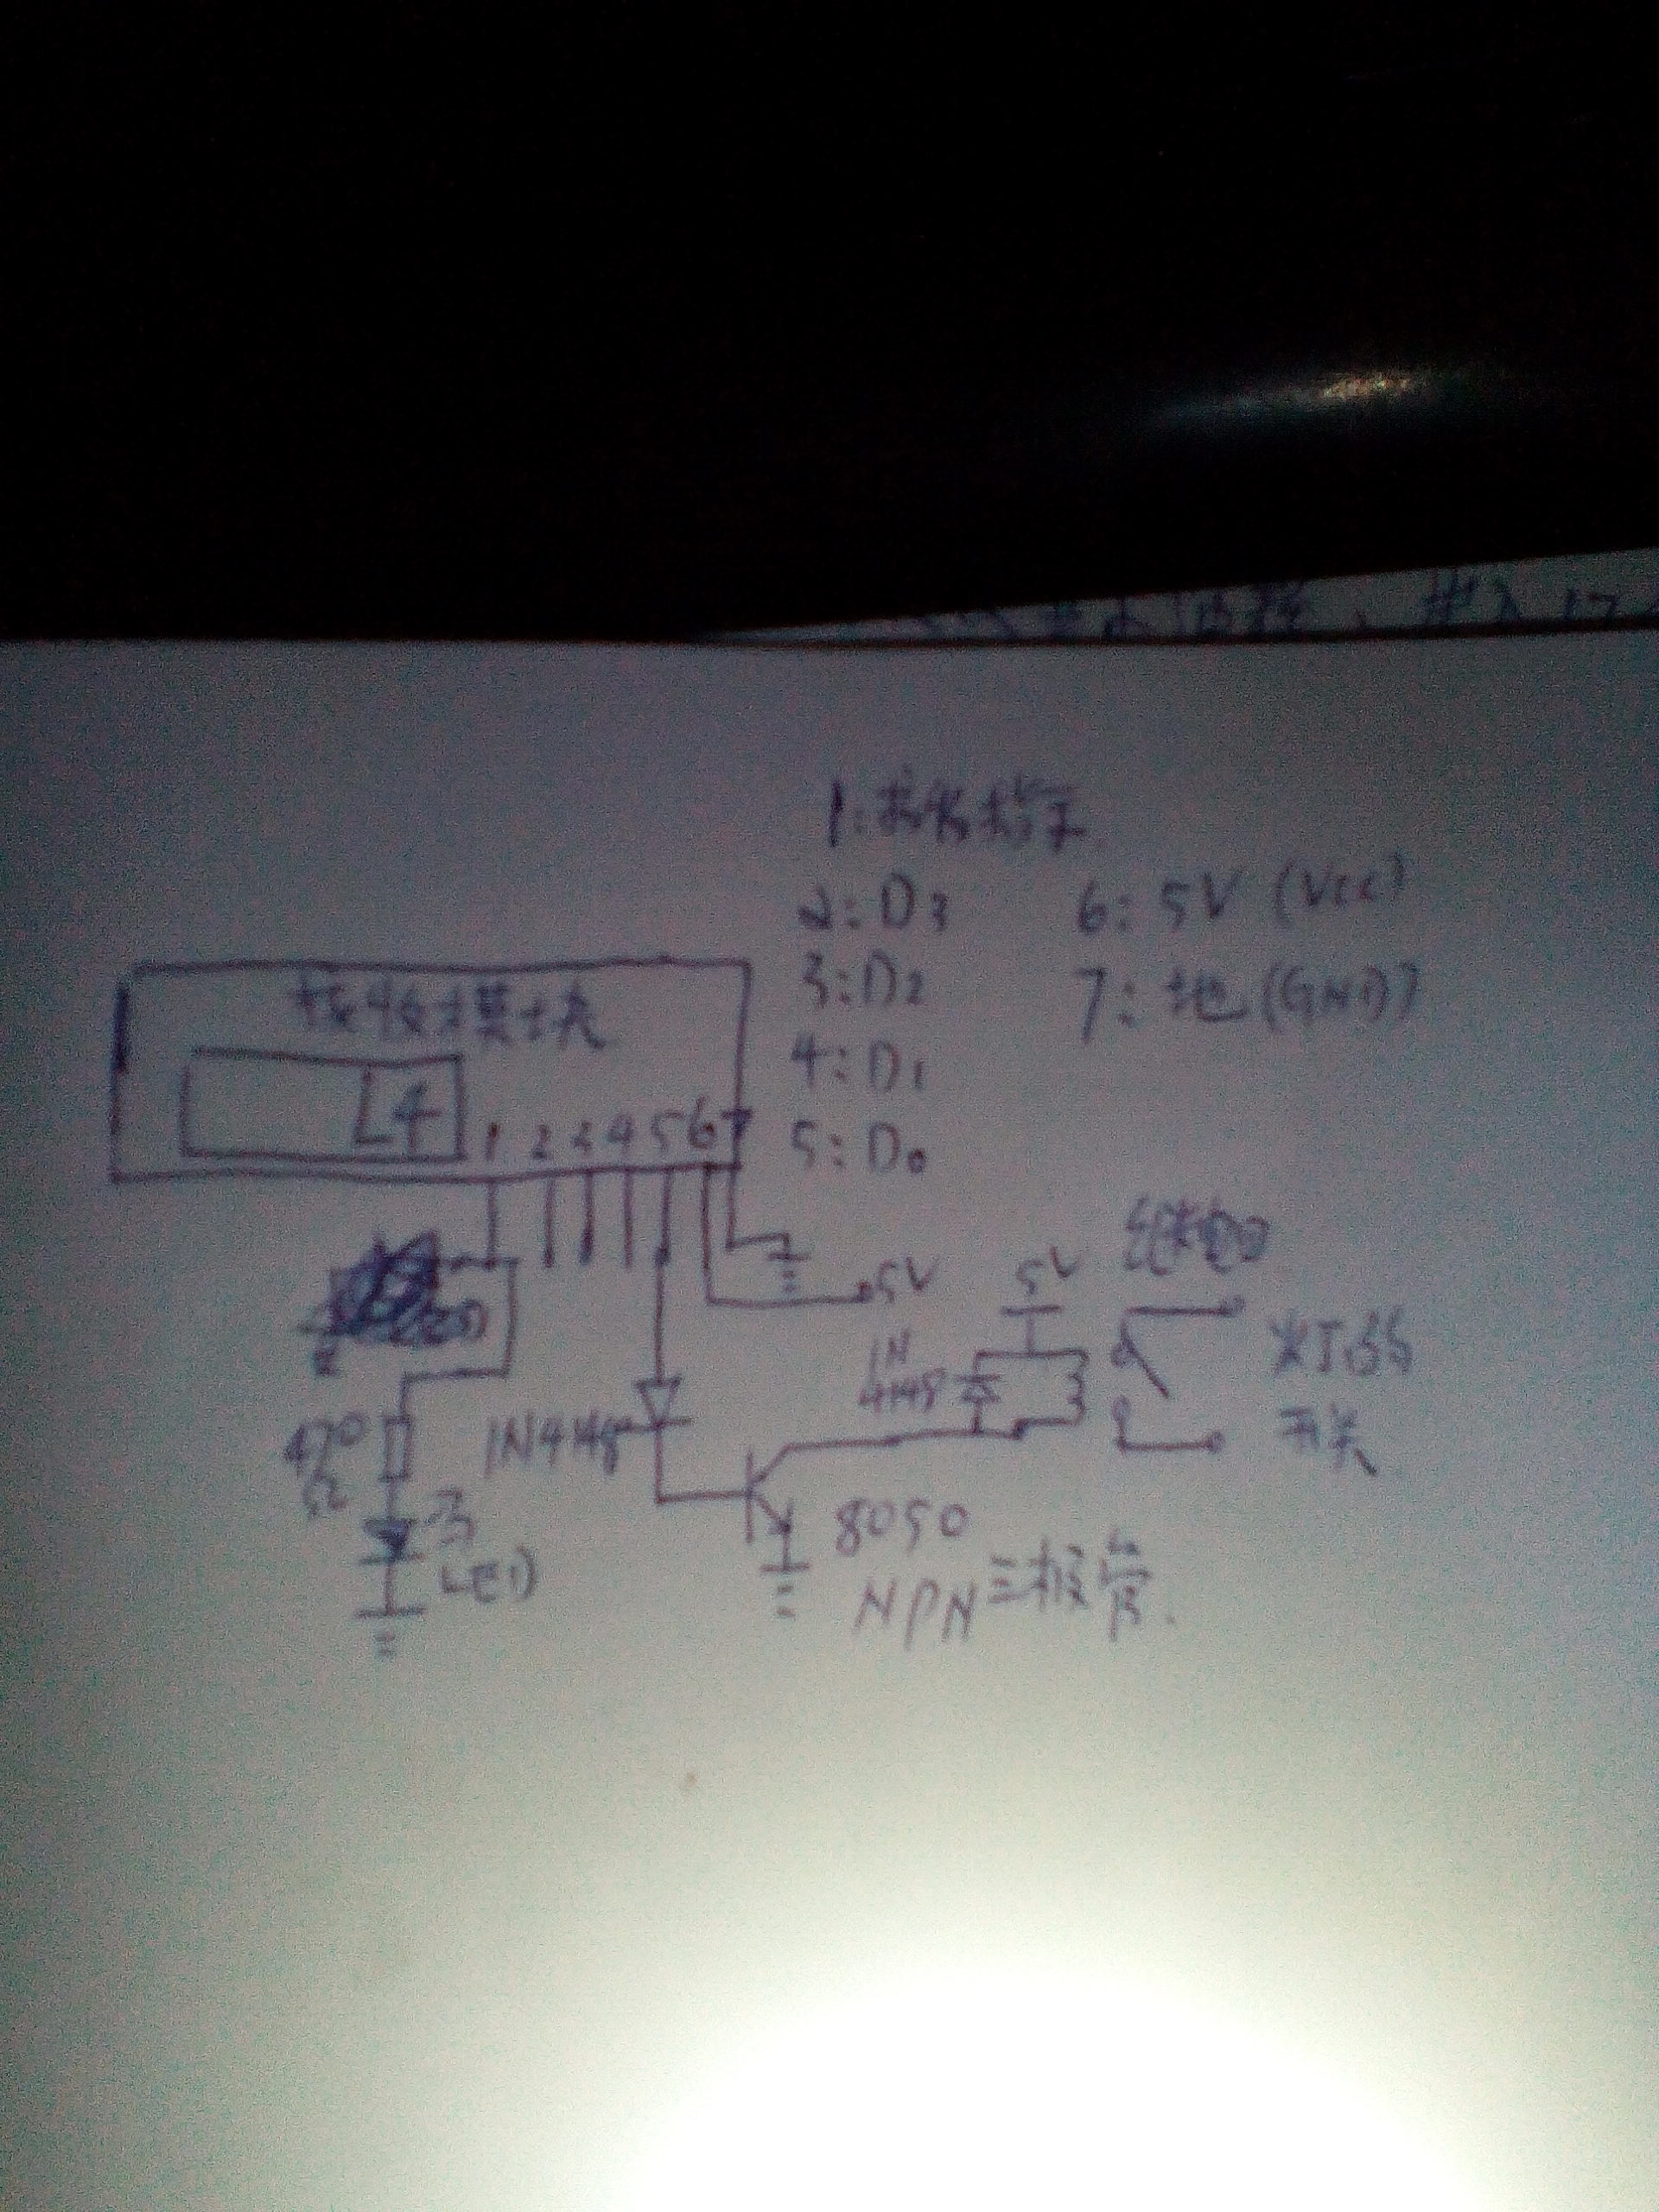 1:接收指示
2:D3
6:5V (Vcc)
3:D2
7:地(GND)
接收模块
4:D1
L4
1 2 3 4 5 6 7
5:D0
继电口
5V
5V
1N
4148
灯的
开关
470
Ω
1N4148
8050
LED
NPN三极管.